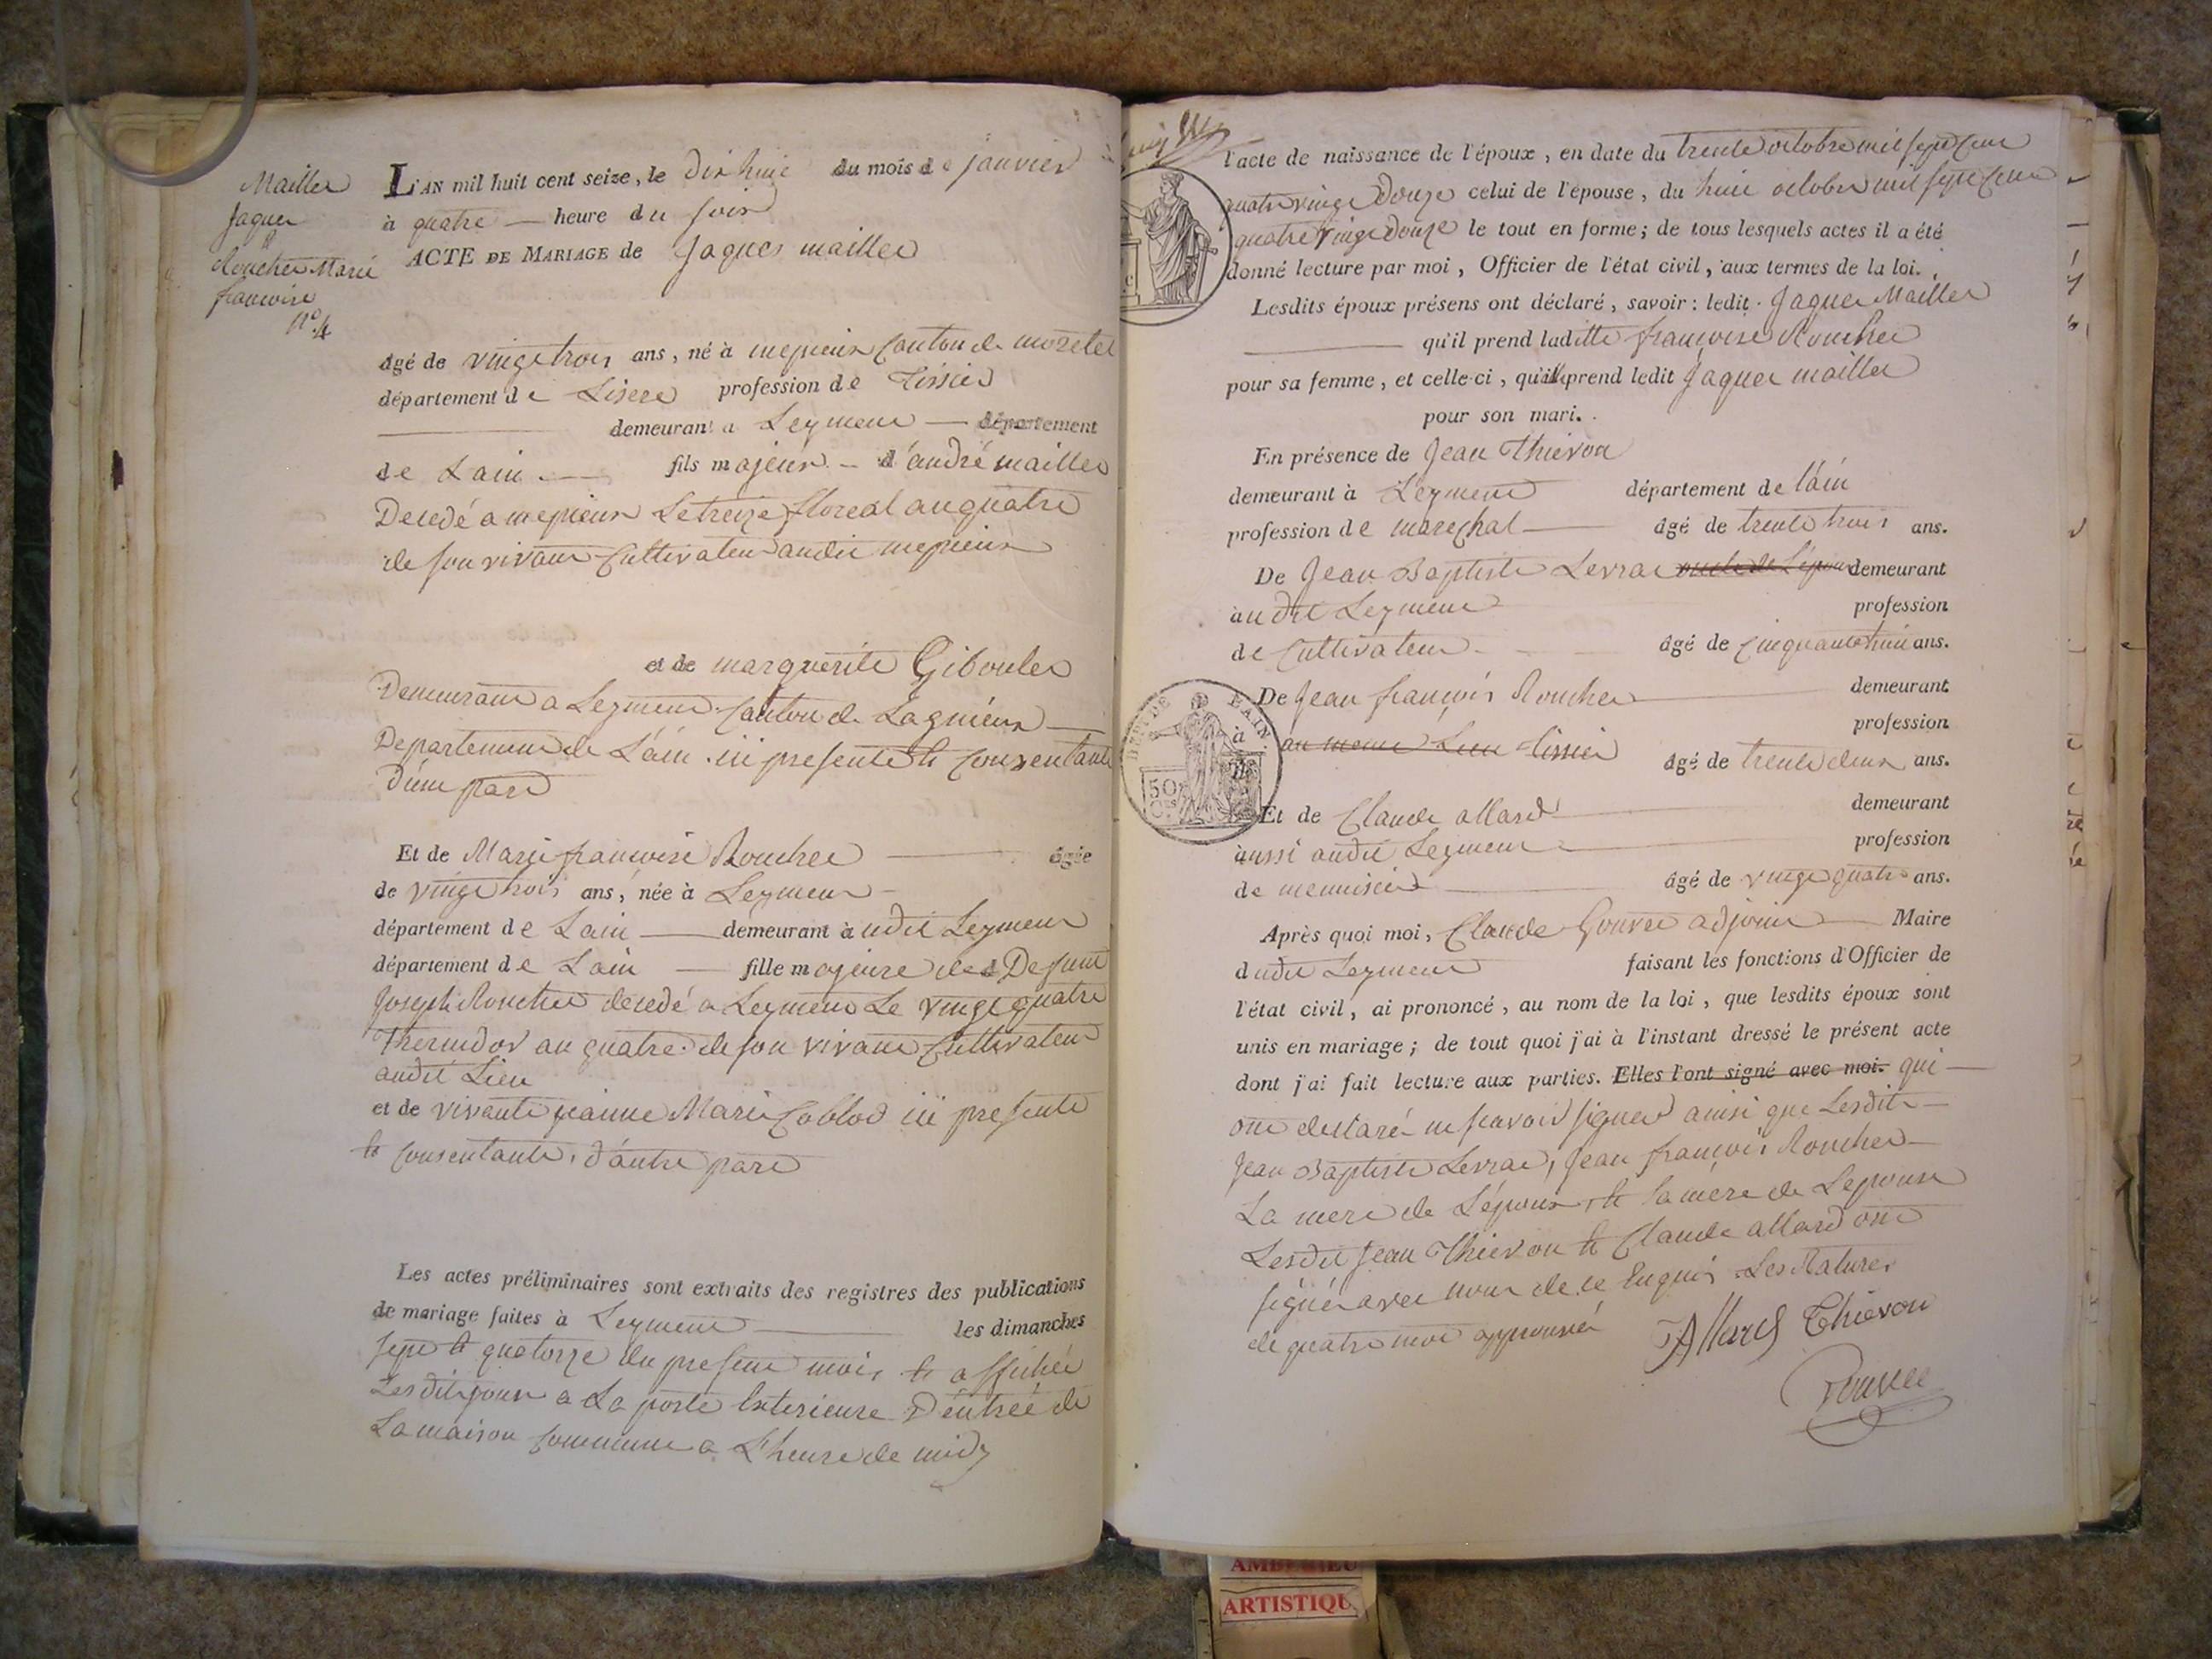 Mailler
Jaques
&
Roucher Marie
francoise
N° 4
L'AN mil huit cent seize, le dix huit du mois de janvier
à quatre — heure du soir
ACTE DE MARIAGE de Jaques mailler
âgé de vingt trois ans, né à mepieux canton de moretel
département de Lisere profession de tissier
demeurant a Leyment — département
de Lain — fils majeur — d'andré mailler
Decedé a mepieux Le treize floreal an quatre
de son vivant Cultivateur audit mepieux
et de marguerite Giboulet
Demeurant a Leyment Canton de Lagnieux
Departement de L'ain ici presente et Consentante
d'une part
Et de Marie francoise Roucher — âgée
de vingt trois ans, née à Leyment
département de Lain — demeurant audit Leyment
département de Lain — fille majeure de Defunt
Joseph Roucher decedé a Leyment Le vingt quatre
Thermidor an quatre de son vivant Cultivateur
audit Lieu
et de vivante jeanne Marie Coblod ici presente
et Consentante, d'autre part
Les actes préliminaires sont extraits des registres des publications
de mariage faites à Leyment — les dimanches
sept et quatorze du present mois et affichée
Lesdits jours a La porte Exterieure D'entrée de
La maison Commune a L'heure de midy
l'acte de naissance de l'époux, en date du trente octobre mil sept cent
quatre vingt Douze celui de l'épouse, du huit octobre mil sept cent
quatre vingt douze le tout en forme; de tous lesquels actes il a été
donné lecture par moi, Officier de l'état civil, aux termes de la loi.
Lesdits époux présens ont déclaré, savoir: ledit Jaques Mailler
— qu'il prend laditte francoise Roucher
pour sa femme, et celle-ci, qu'elle prend ledit Jaques mailler
pour son mari.
En présence de Jean Thievon
demeurant à Leyment département de l'ain
profession de marechal — âgé de trente trois ans.
De Jean Baptiste Levrat oncle de L'époux demeurant
audit Leyment profession
de Cultivateur âgé de cinquante huit ans.
De Jean francois Roucher — demeurant
au meme Lieu tissier profession
âgé de trente deux ans.
Et de Claude allard demeurant
aussi audit Leyment profession
de menuisier âgé de vingt quatre ans.
Après quoi moi, Claude Gouvee adjoint — Maire
dudit Leyment faisant les fonctions d'Officier de
l'état civil, ai prononcé, au nom de la loi, que lesdits époux sont
unis en mariage; de tout quoi j'ai à l'instant dressé le présent acte
dont j'ai fait lecture aux parties. Elles l'ont signé avec moi. qui —
ont declaré ne scavoir signer ainsi que Lesdits
Jean Baptiste Levrat, Jean francois Roucher
La mere de L'époux, et la mere de Lepouse
Lesdit Jean Thievon et Claude allard ont
signé avec nous de ce Enquis Les Ratures
de quatre mot approuvée
Allard Thievon
DEPT DE L'AIN
50
AMBERIEU
ARTISTIQU